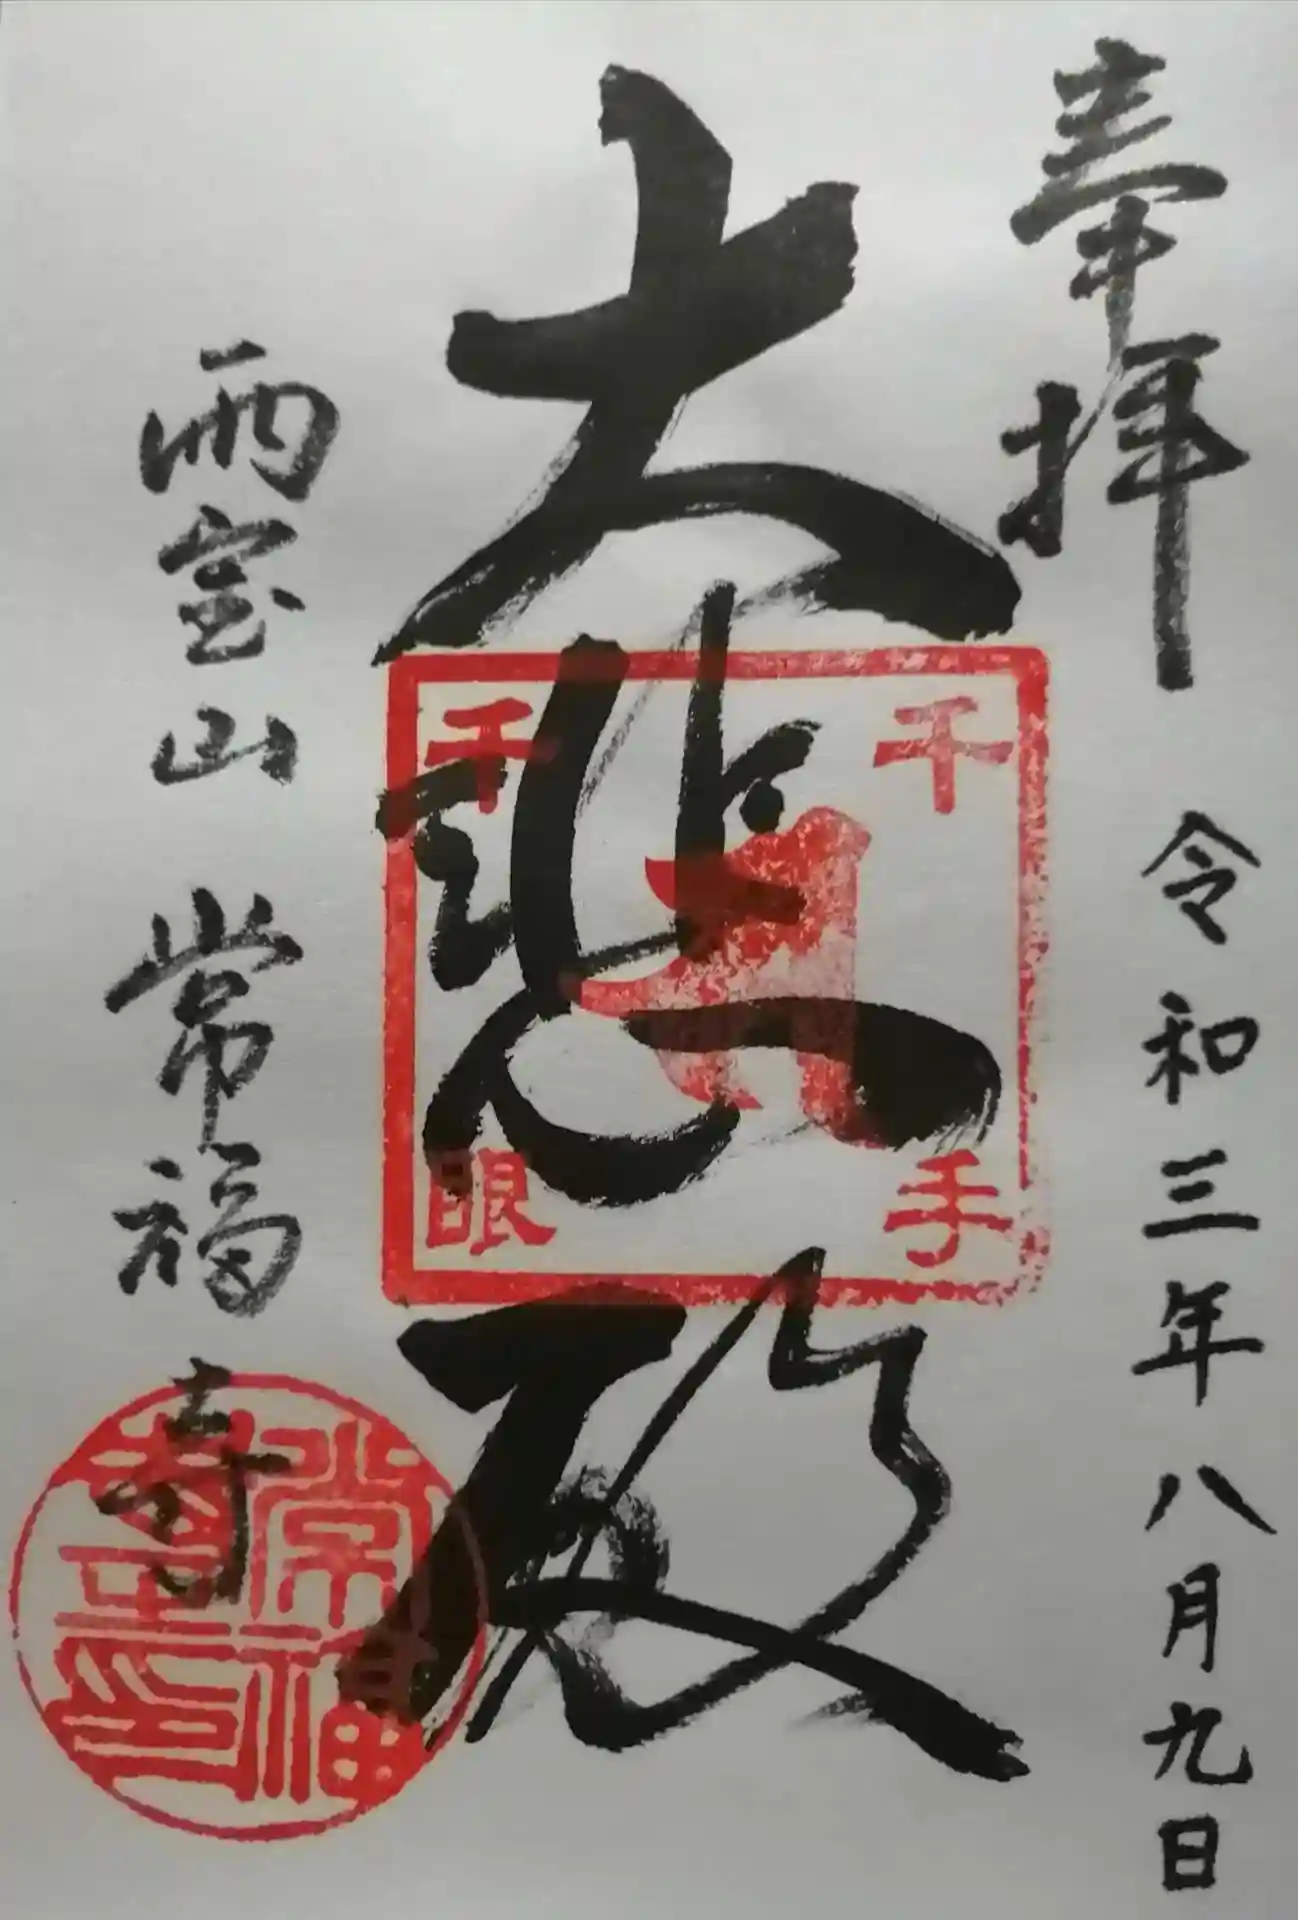 奉拝 令和三年八月九日
大悲殿
千手
千眼
雨宝山 常福寺
常福寺印